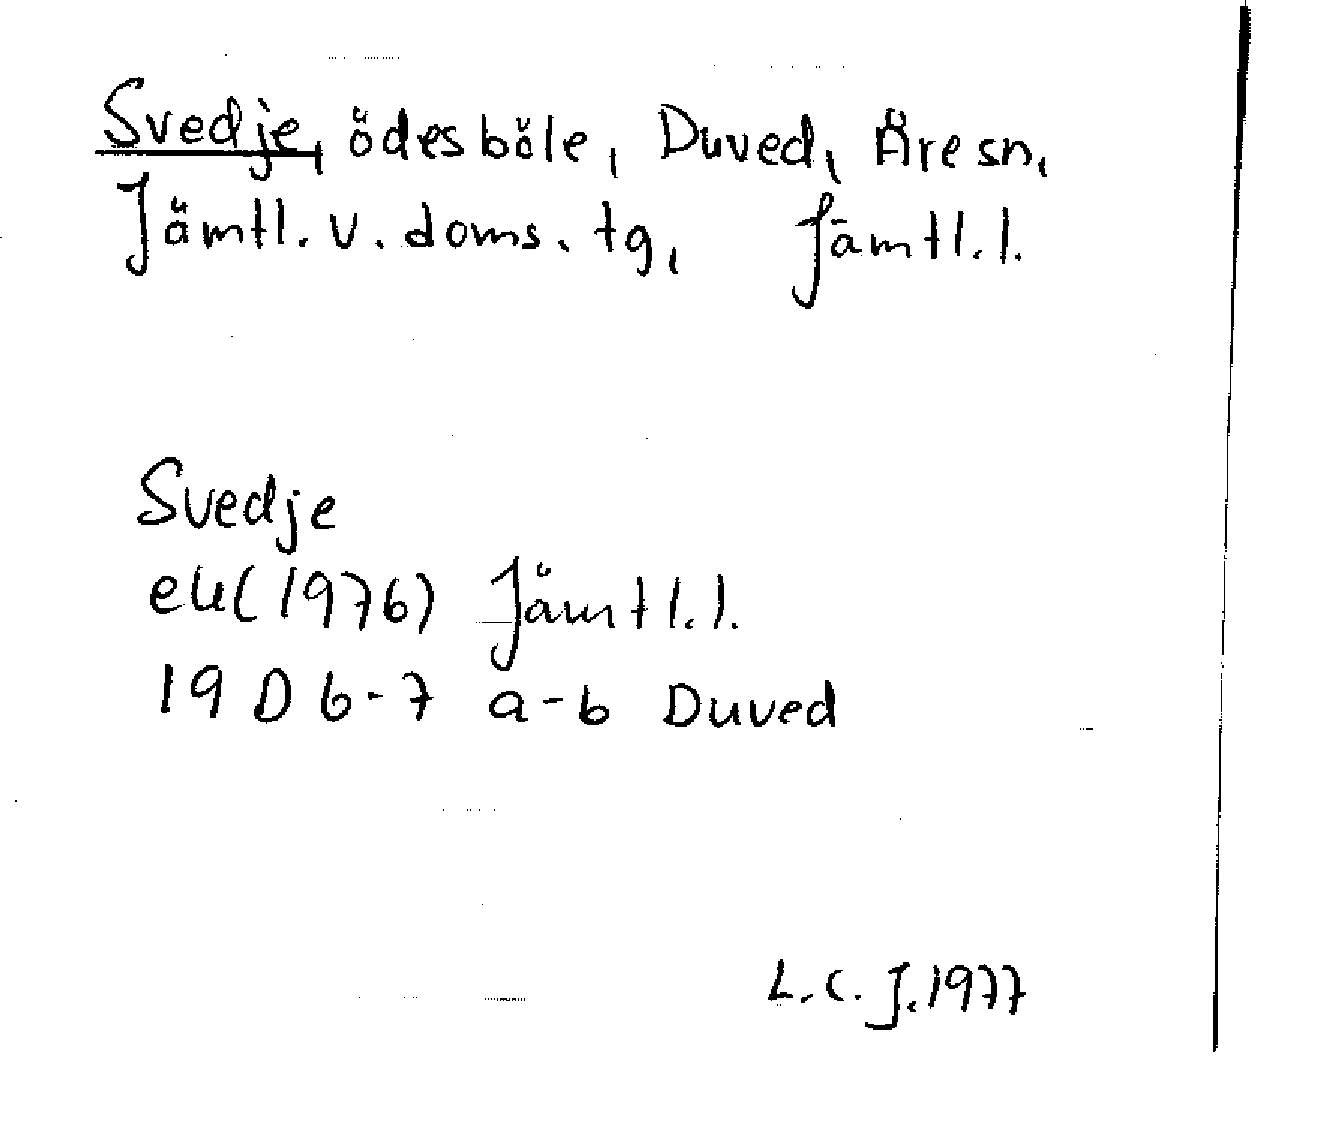 Svedje, ödesböle, Duved, Åre sn,
Jämtl. v. doms. tg, Jämtl. l.
Svedje
ek(1976) Jämtl. l.
19 D 6-7 a-b Duved
L. C. J. 1977